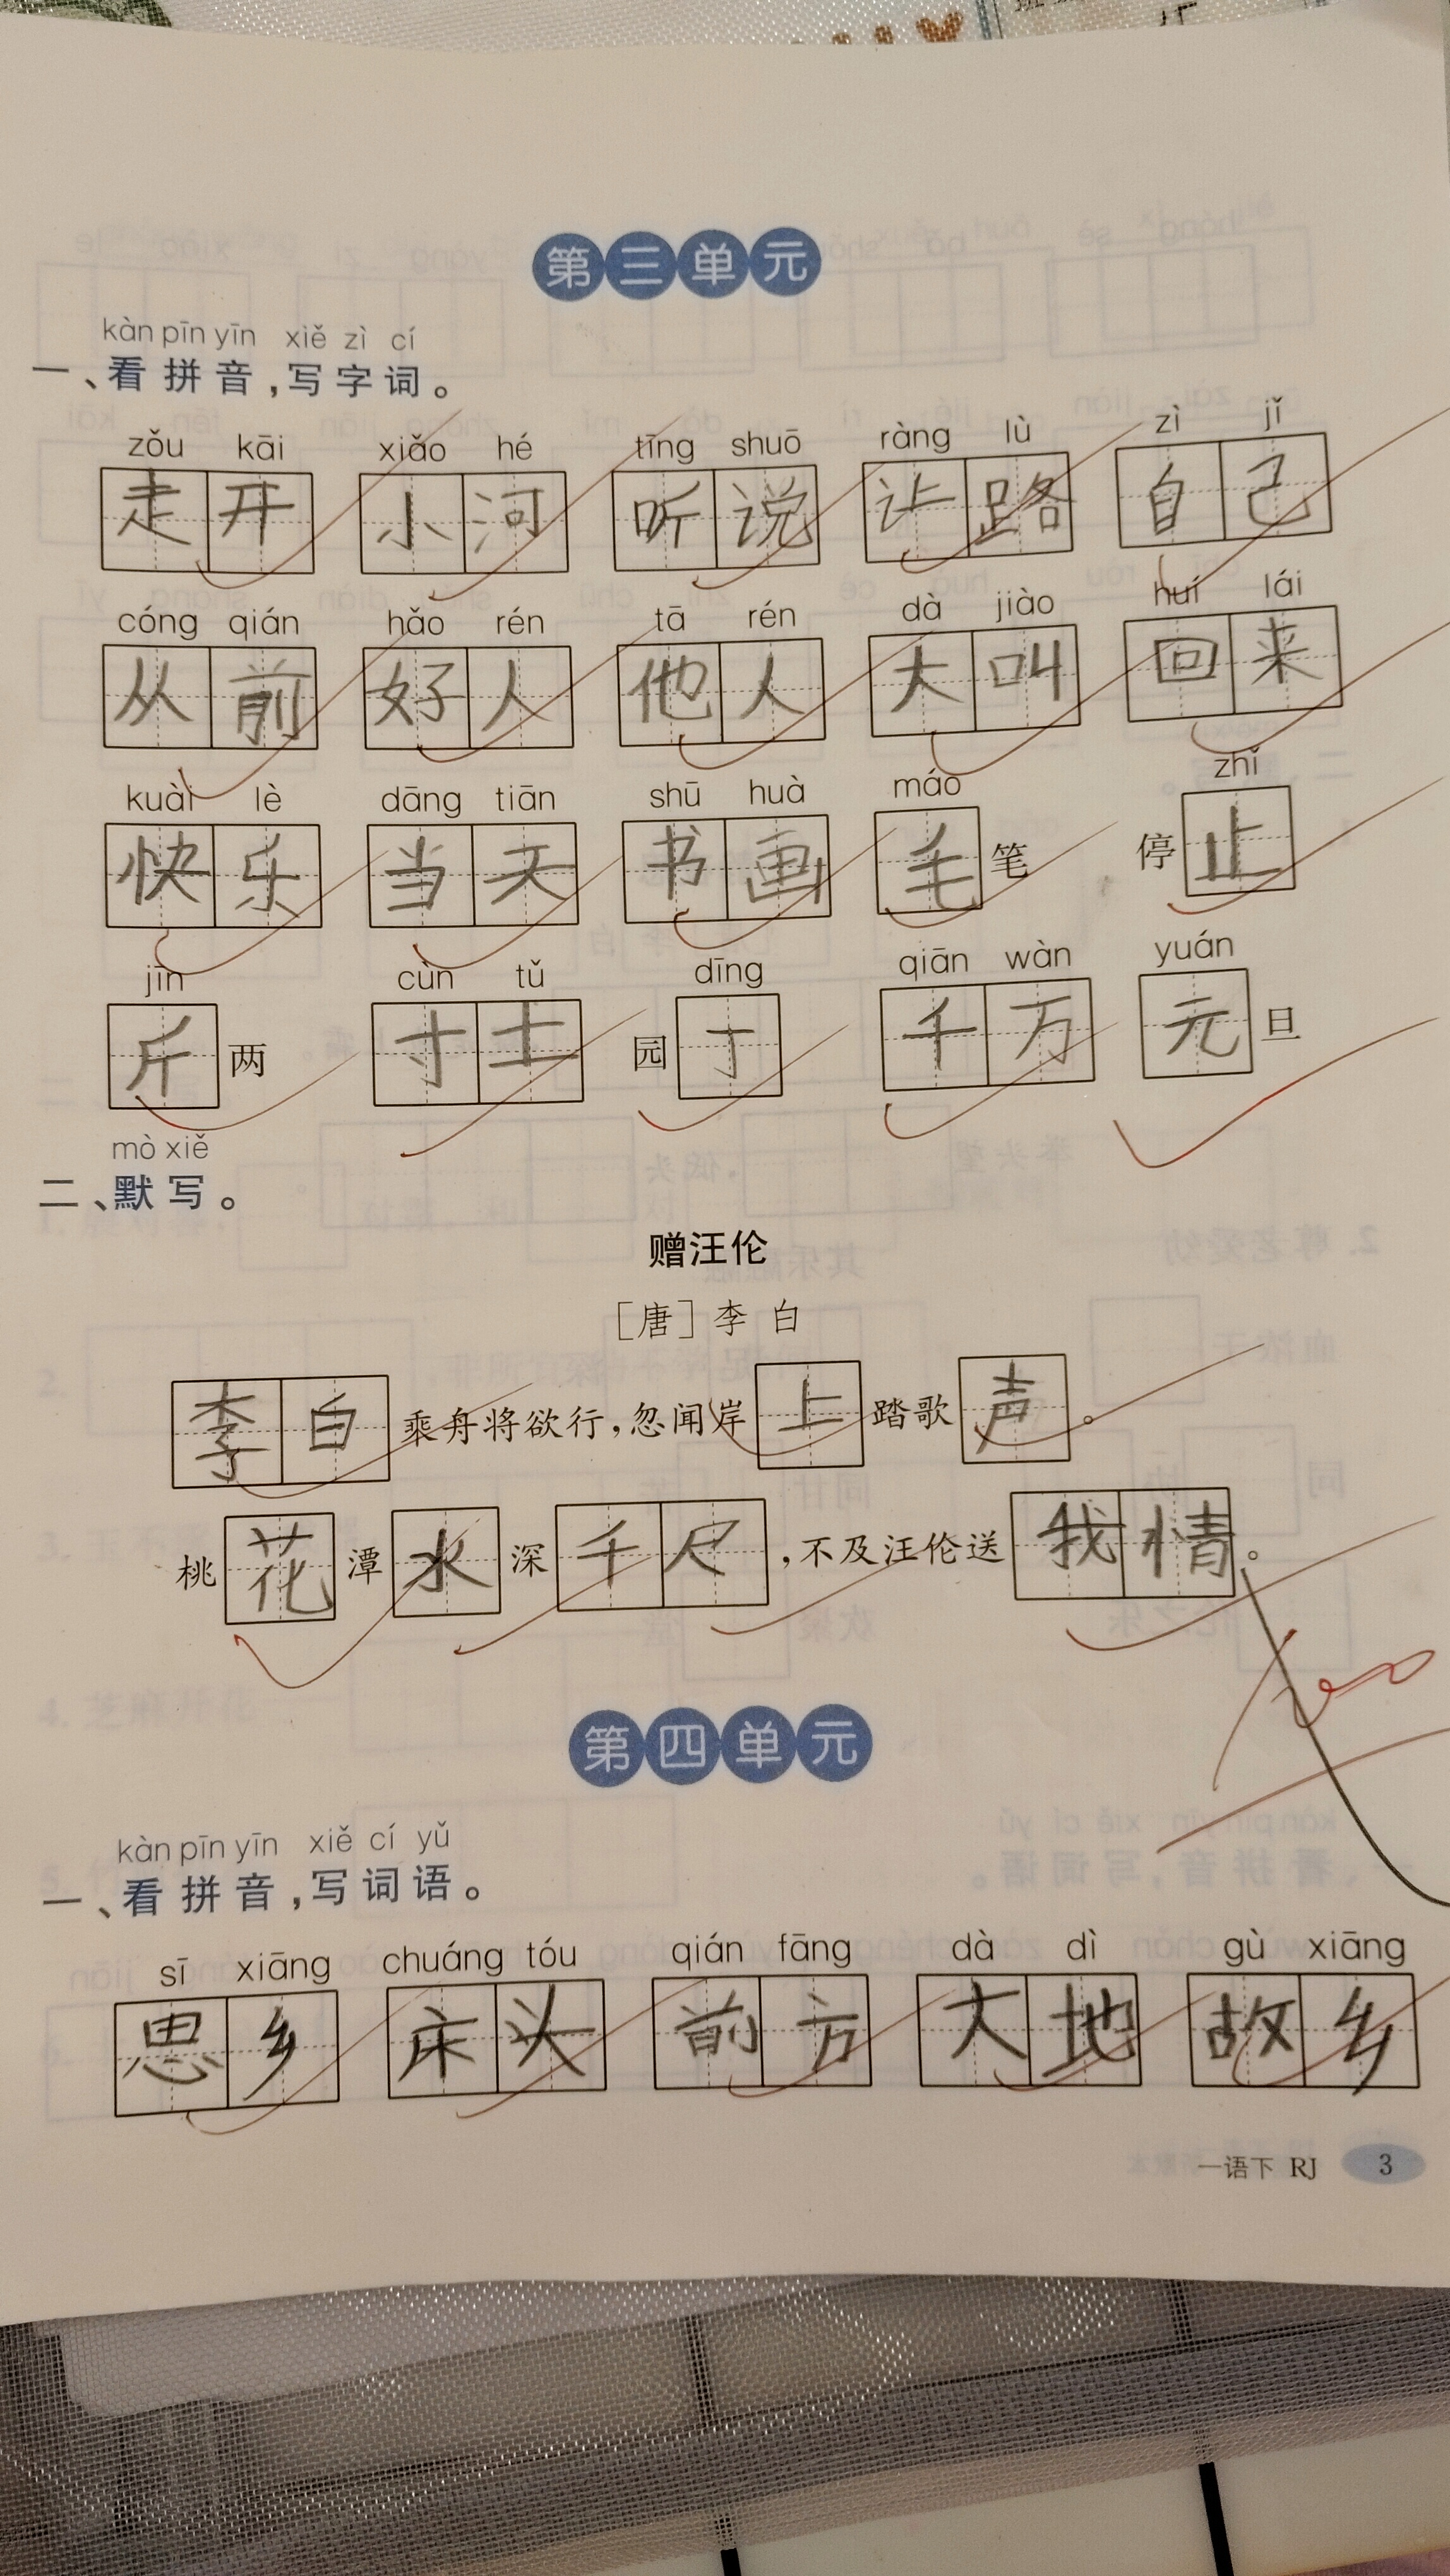 第三单元
kàn pīn yīn xiě zì cí
一、看拼音,写字词。
zǒu kāi xiǎo hé tīng shuō ràng lù zì jǐ
走开 小河 听说 让路 自己
cóng qián hǎo rén tā rén dà jiào huí lái
从前 好人 他人 大叫 回来
kuài lè dāng tiān shū huà máo zhǐ
快乐 当天 书画 毛笔 停止
jīn cùn tǔ dīng qiān wàn yuán
斤两 寸土 园丁 千万 元旦
mò xiě
二、默写。
赠汪伦
[唐]李白
李白乘舟将欲行,忽闻岸上踏歌声。
桃花潭水深千尺,不及汪伦送我情。
第四单元
kàn pīn yīn xiě cí yǔ
一、看拼音,写词语。
sī xiāng chuáng tóu qián fāng dà dì gù xiāng
思乡 床头 前方 大地 故乡
一语下 RJ 3